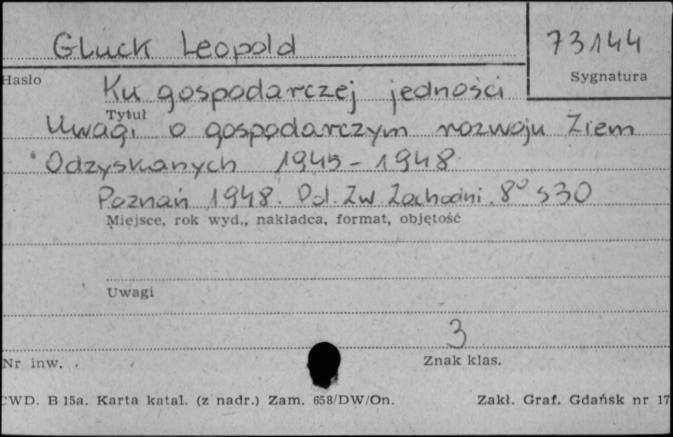 Gluck Leopold
73144
Hasło
Sygnatura
Ku gospodarczej jedności
Tytuł
Uwagi o gospodarczym rozwoju Ziem
Odzyskanych 1945-1948
Poznań 1948. Pol. Zw Zachodni. 8° s30
Miejsce, rok wyd., nakładca, format, objętość
Uwagi
3
Nr inw.
Znak klas.
CWD. B 15a. Karta katal. (z nadr.) Zam. 658/DW/On.
Zakł. Graf. Gdańsk nr 17